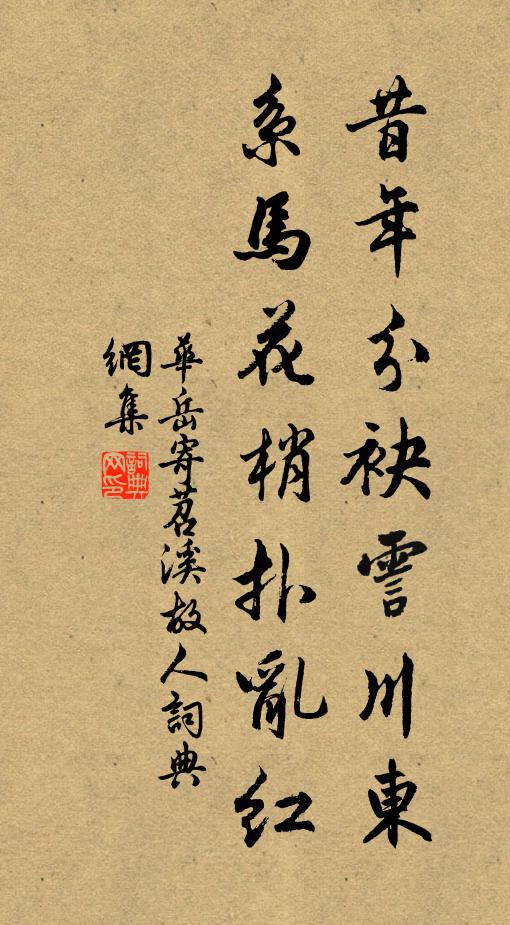 昔年分袂霅川東
系馬花梢扑亂紅
華岳寄苕溪故人詞典
網集
詞典
网印